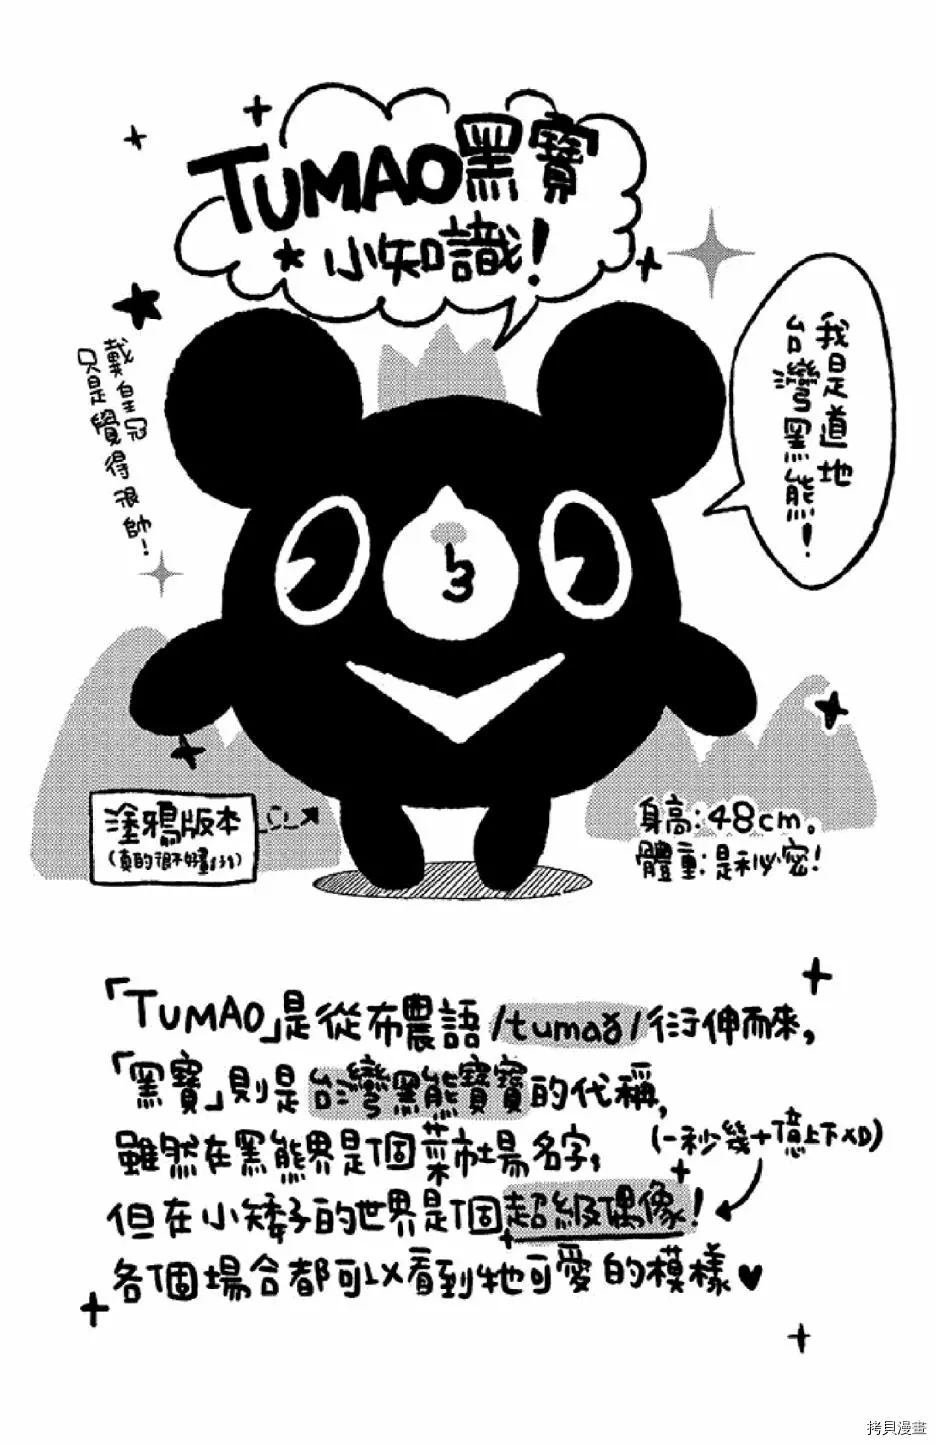 TUMAO黑寶
小知識!
我是道地
台灣黑熊!
戴皇冠
只是覺得很帥!
塗鴉版本
(真的很不好畫
身高:48cm。
體重:是秘密!
「TUMAO」是從布農語/tumað/衍伸而來,
「黑寶」則是台灣黑熊寶寶的代稱,
雖然在黑熊界是個菜市場名字,
(一秒幾十億上下XD)
但在小矮子的世界是個超級偶像!
各個場合都可以看到牠可愛的模樣♥
拷貝漫畫